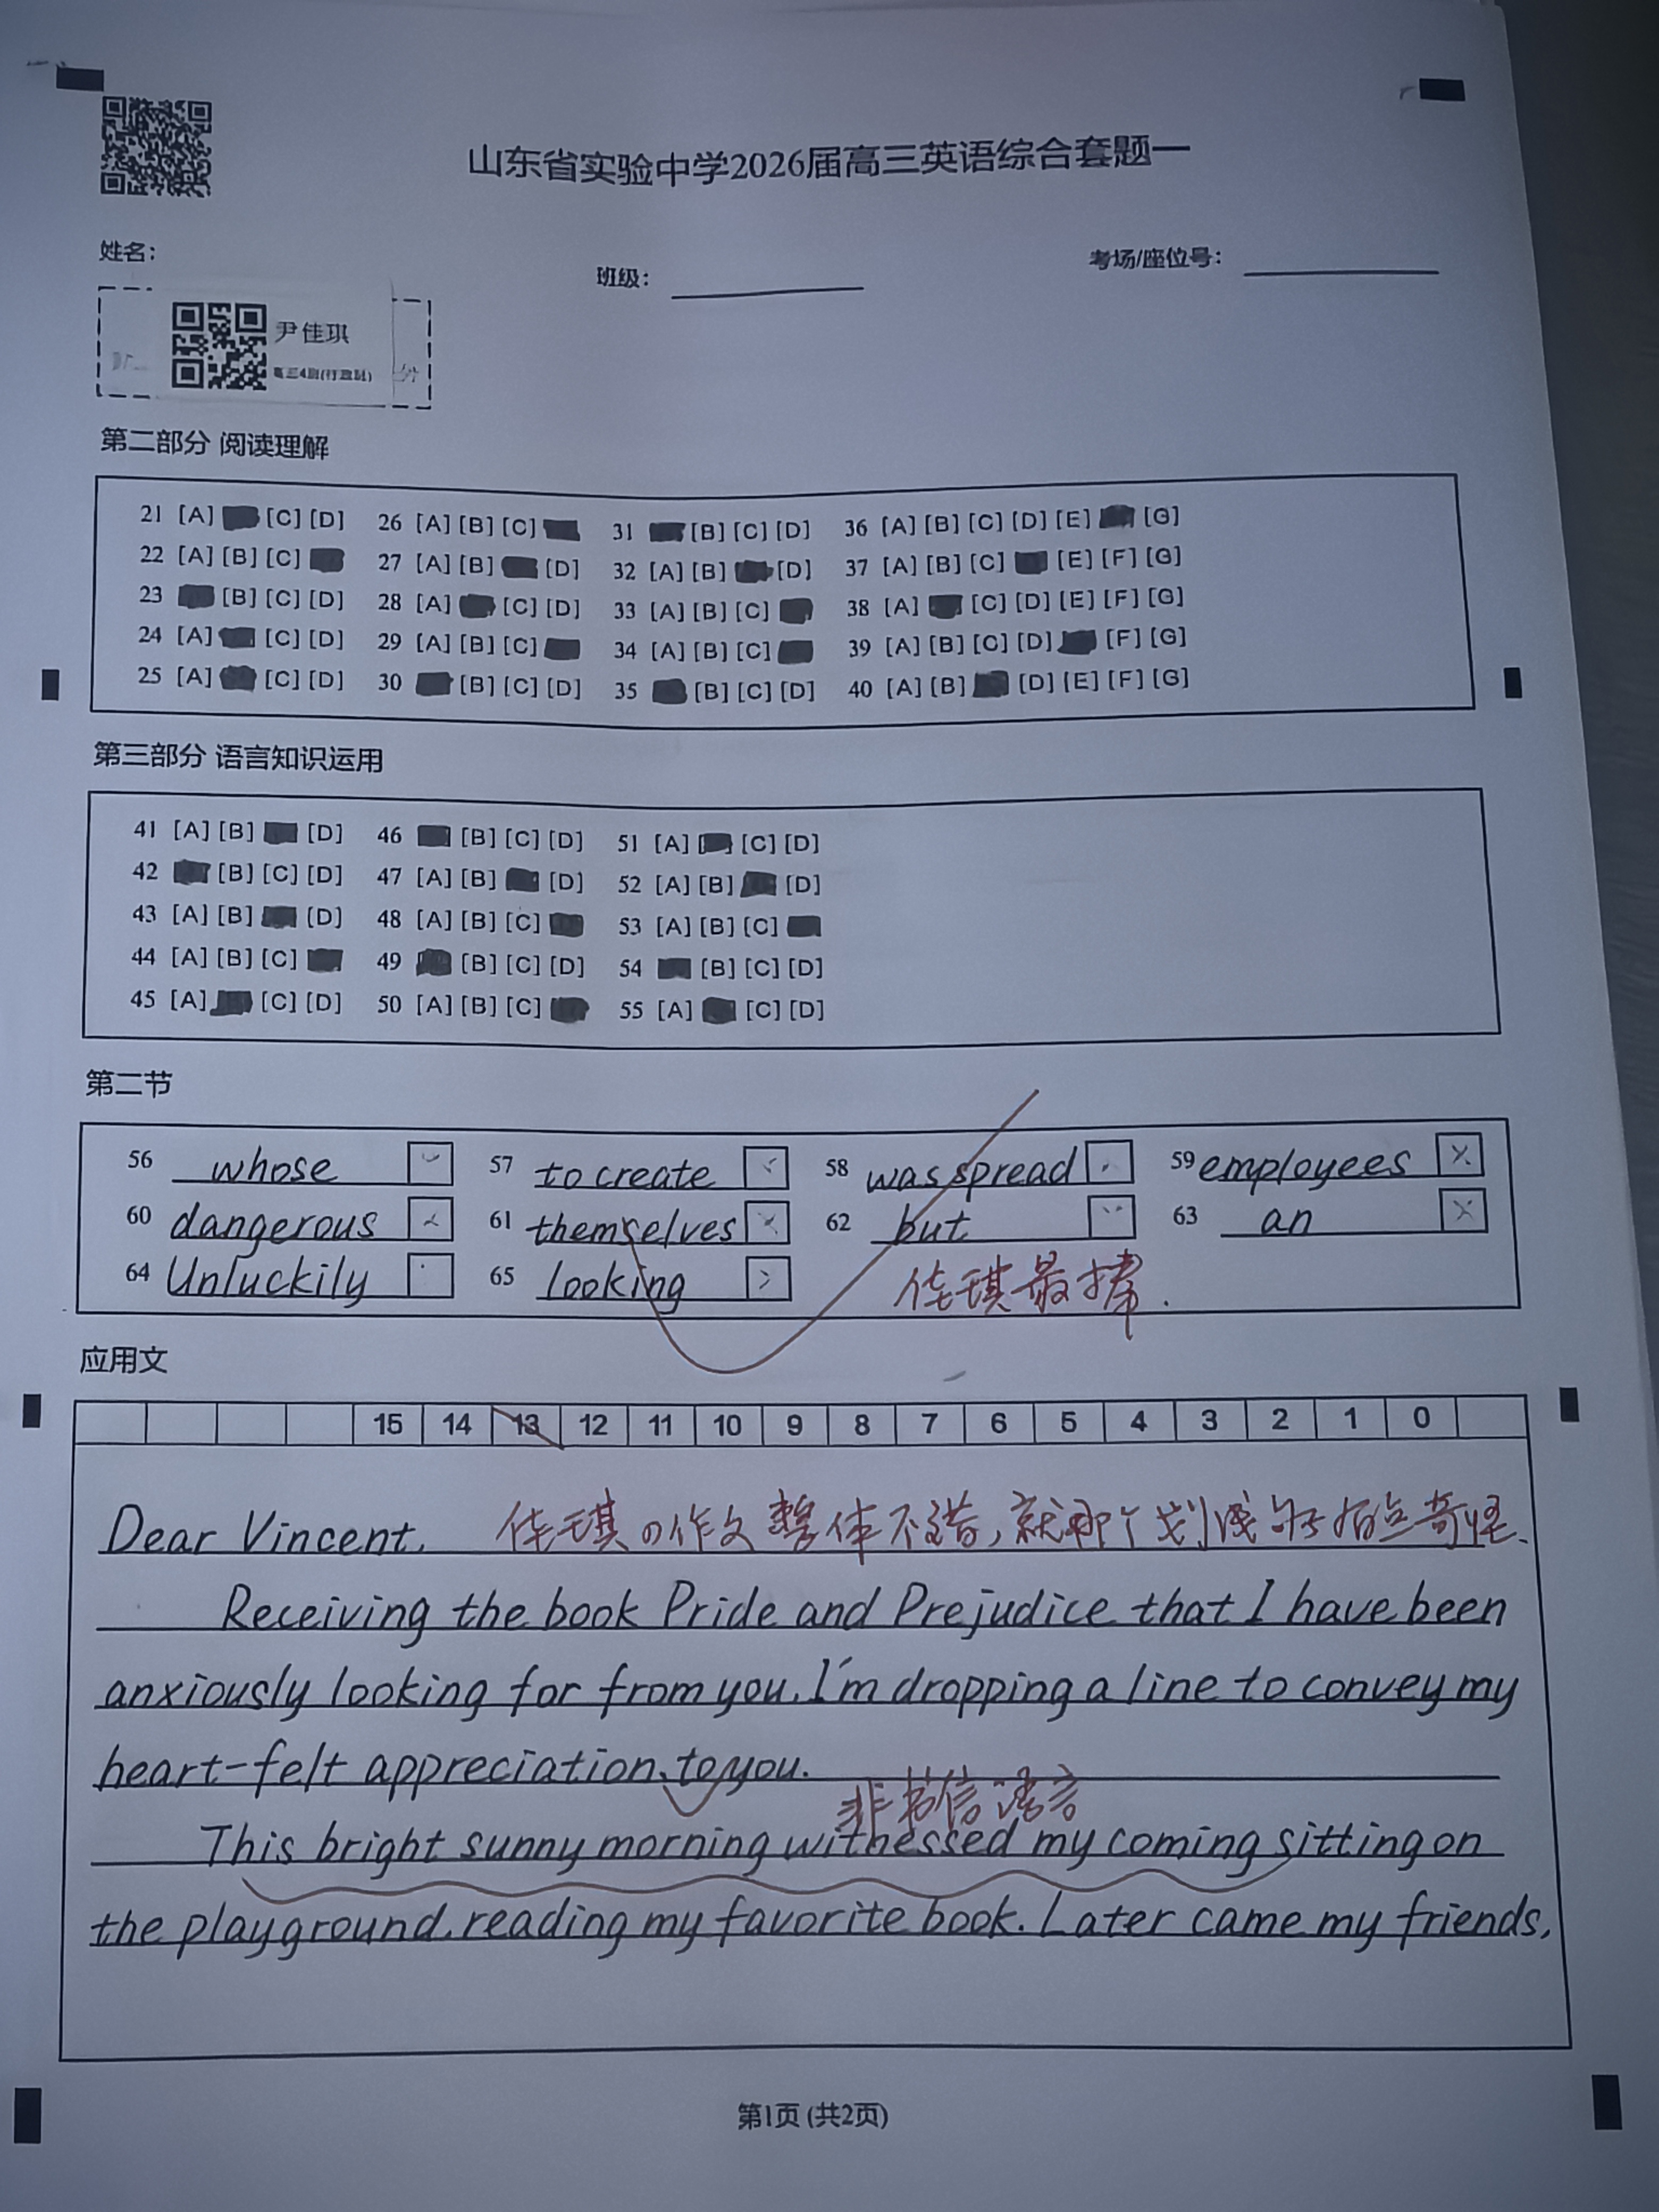 山东省实验中学2026届高三英语综合套题一
姓名：
班级：
考场/座位号：
尹佳琪
高三4班(行政班)
分
第二部分 阅读理解
21 [A] [C] [D] 26 [A] [B] [C] 31 [B] [C] [D] 36 [A] [B] [C] [D] [E] [G]
22 [A] [B] [C] 27 [A] [B] [D] 32 [A] [B] [D] 37 [A] [B] [C] [E] [F] [G]
23 [B] [C] [D] 28 [A] [C] [D] 33 [A] [B] [C] 38 [A] [C] [D] [E] [F] [G]
24 [A] [C] [D] 29 [A] [B] [C] 34 [A] [B] [C] 39 [A] [B] [C] [D] [F] [G]
25 [A] [C] [D] 30 [B] [C] [D] 35 [B] [C] [D] 40 [A] [B] [D] [E] [F] [G]
第三部分 语言知识运用
41 [A] [B] [D] 46 [B] [C] [D] 51 [A] [C] [D]
42 [B] [C] [D] 47 [A] [B] [D] 52 [A] [B] [D]
43 [A] [B] [D] 48 [A] [B] [C] 53 [A] [B] [C]
44 [A] [B] [C] 49 [B] [C] [D] 54 [B] [C] [D]
45 [A] [C] [D] 50 [A] [B] [C] 55 [A] [C] [D]
第二节
56 whose 57 to create 58 was spread 59 employees
60 dangerous 61 themselves 62 but 63 an
64 Unluckily 65 looking
佳琪最棒.
应用文
15 14 13 12 11 10 9 8 7 6 5 4 3 2 1 0
Dear Vincent, 佳琪の作文整体不错,就那个划线句子有点奇怪、
Receiving the book Pride and Prejudice that I have been
anxiously looking for from you, I'm dropping a line to convey my
heart-felt appreciation to you.
非书信语言
This bright sunny morning witnessed my coming sitting on
the playground, reading my favorite book. Later came my friends,
第1页 (共2页)